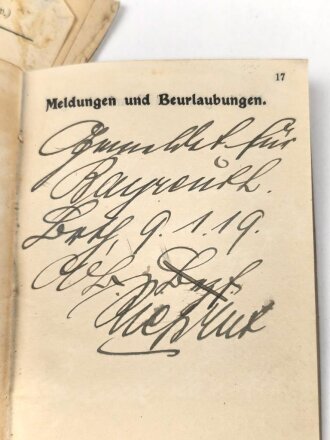 17
Meldungen und Beurlaubungen.
Gemeldet für
Bayreuth.
Brth, 9.1.19.